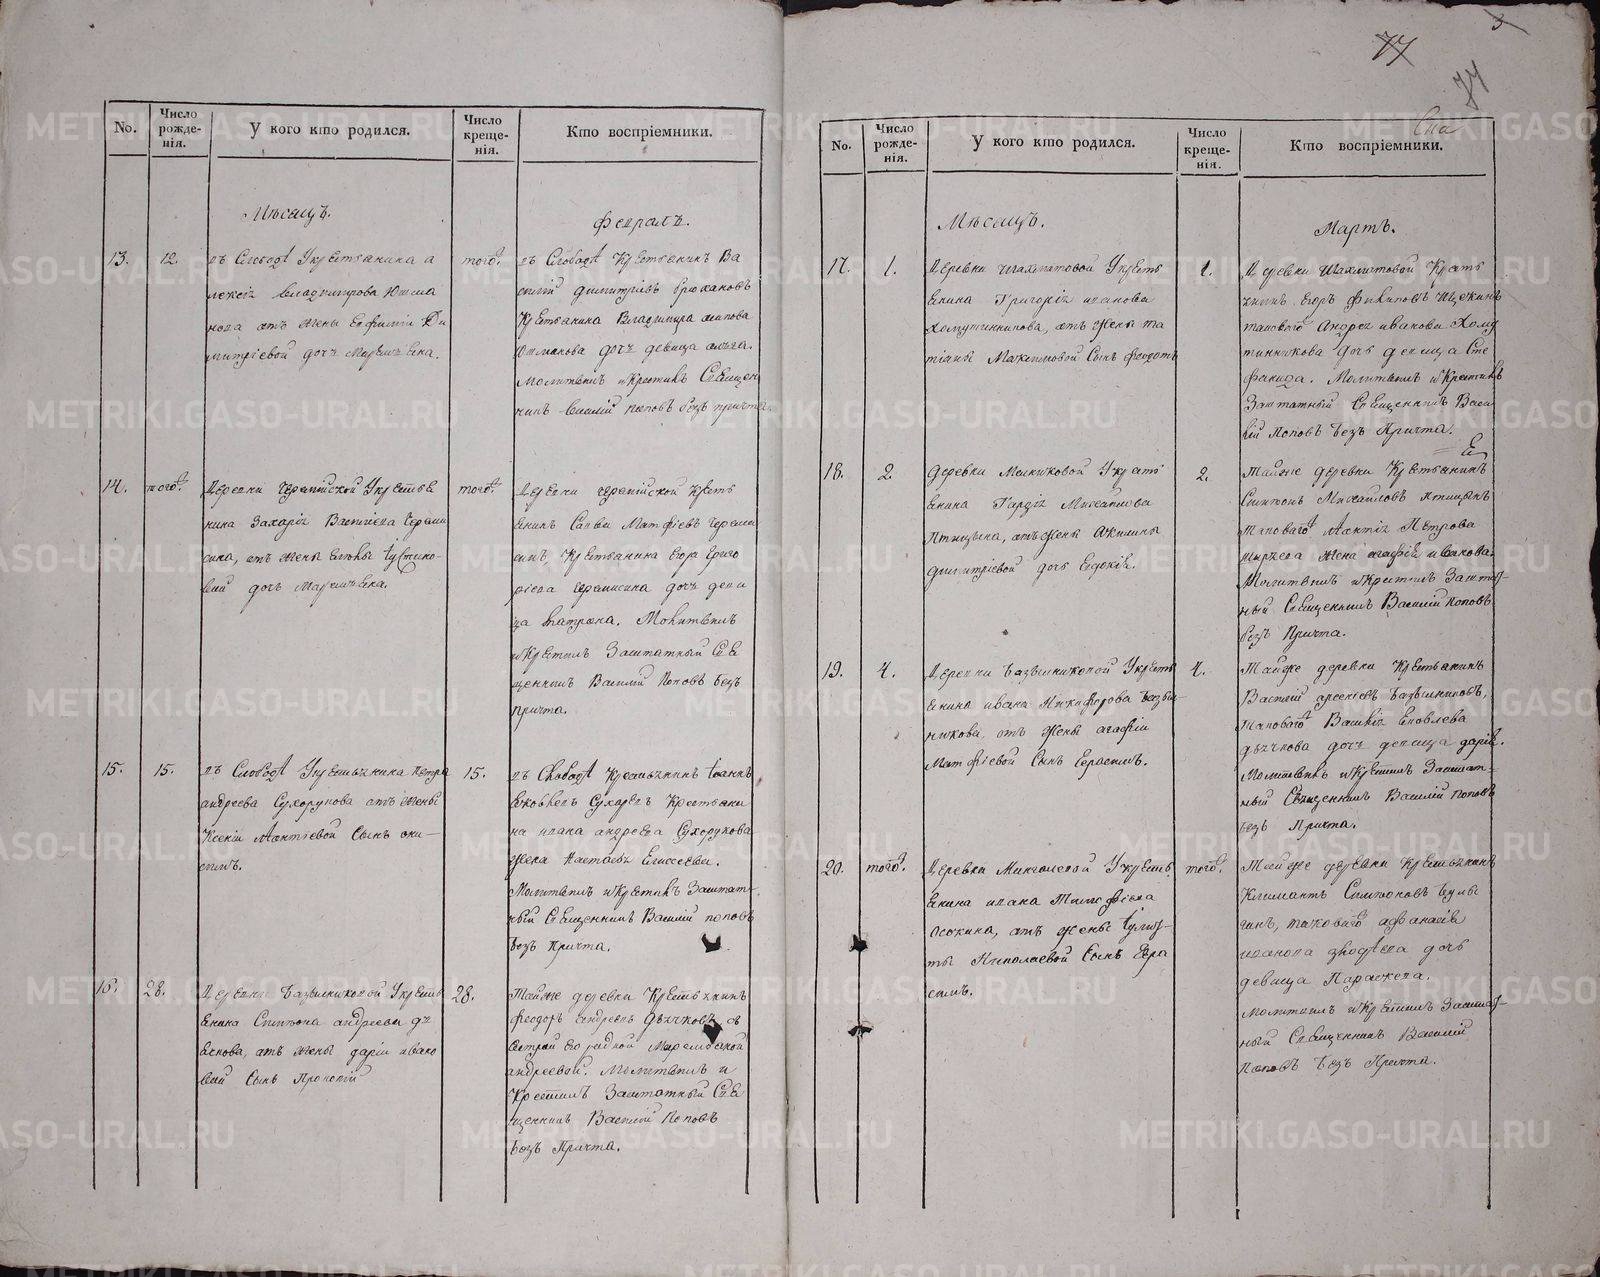 No.
Число рожде-
нія.
У кого кто родился.
Число креще-
нія.
Кто воспріемники.
Мѣсяцъ.
Февраль.
13.
12.
въ Слободѣ У крестьянина а
лексія владимирова Южа
нова отъ жены Евфиміи Ди
митріевой дочь Маріанна.
того.
въ Слободѣ Крестьянинъ Ва
силій димитріевъ брюхановъ
Крестьянина Владимира
дочь девица
Молитвилъ и Крестилъ Священ
никъ василій поповъ безъ причта
14.
того.
Деревни У крестья
нина Захарія Василіева
отъ жены
дочь Маріанна.
того.
Деревни Кресть
янинъ Савва Матфіевъ
Крестьянина Егора Григо
ріева дочь деви
ца Матрона. Молитвилъ
и Крестилъ Заштатный Свя
щенникъ Василій Поповъ безъ
причта.
15.
15.
въ Слободѣ У крестьянина Петра
андреева Сухорукова отъ жены
Ксеніи Леонтіевой Сынъ они-
симъ.
15.
въ Слободѣ Крестьянинъ Іоаннъ
Яковлевъ Сухаревъ Крестьяни
на ивана андреева Сухорукова
жена Настасья Елиссеева.
Молитвилъ и Крестилъ Заштат-
ный Священникъ Василій поповъ
безъ причта.
16.
28.
Деревни Базвильниковой У кресть
янина Симиона андреева дь
якова, отъ жены даріи ивано
вой Сынъ Прокопій
28.
Тойже деревни Крестьянинъ
феодоръ андреевъ Дьячковъ съ
сестрой его родной
андреевой. Молитвилъ и
Крестилъ Заштатный Свя
щенникъ Василій Поповъ
безъ Причта.
3
77
77
No.
Число рожде-
нія.
У кого кто родился.
Число креще-
нія.
Кто воспріемники.
Мѣсяцъ.
Мартъ.
17.
1.
Деревни Шахматовой У кресть
янина Григорія иванова
Хомутинникова, отъ жены та
тіаны Максимовой Сынъ феодотъ
1.
Деревни Шахматовой Кресть
янинъ Егоръ филиповъ
таковагѡ Андрея иванова Хому
тинникова дочь девица Сте
фанида. Молитвилъ и Крестилъ
Заштатный Священникъ Васи
лій Поповъ безъ Причта.
18.
2.
деревни У кресть
янина Михайлова
Птицына, отъ жены Акилины
димитріевой дочь Евдокія.
2.
Тойже деревни Крестьянинъ
Симионъ Михайловъ Птицынъ
Таковагѡ Леонтія Петрова
жена агафія иванова.
Молитвилъ и Крестилъ Заштат-
ный Священникъ Василій Поповъ
безъ Причта.
19.
4.
Деревни Базвильниковой У кресть
янина ивана Никифорова Базви-
никова, отъ жены агафіи
Матфіевой Сынъ Герасимъ.
4.
Тойже деревни Крестьянинъ
Василій арсеніевъ Базвильниковъ,
таковагѡ Василія Яковлева
дьячкова дочь девица дарія.
Молитвилъ и Крестилъ Заштат-
ный Священникъ Василій Поповъ
безъ Причта.
20.
того.
Деревни У кресть
янина ивана Тимофіева
отъ жены
Николаевой Сынъ Гера
симъ.
того.
Тойже деревни Крестьянинъ
Климантъ Симионовъ
таковагѡ афанасія
иванова дочь
девица Параскева.
Молитвилъ и Крестилъ Заштат-
ный Священникъ Василій
Поповъ безъ Причта.
METRIKI.GASO-URAL.RU